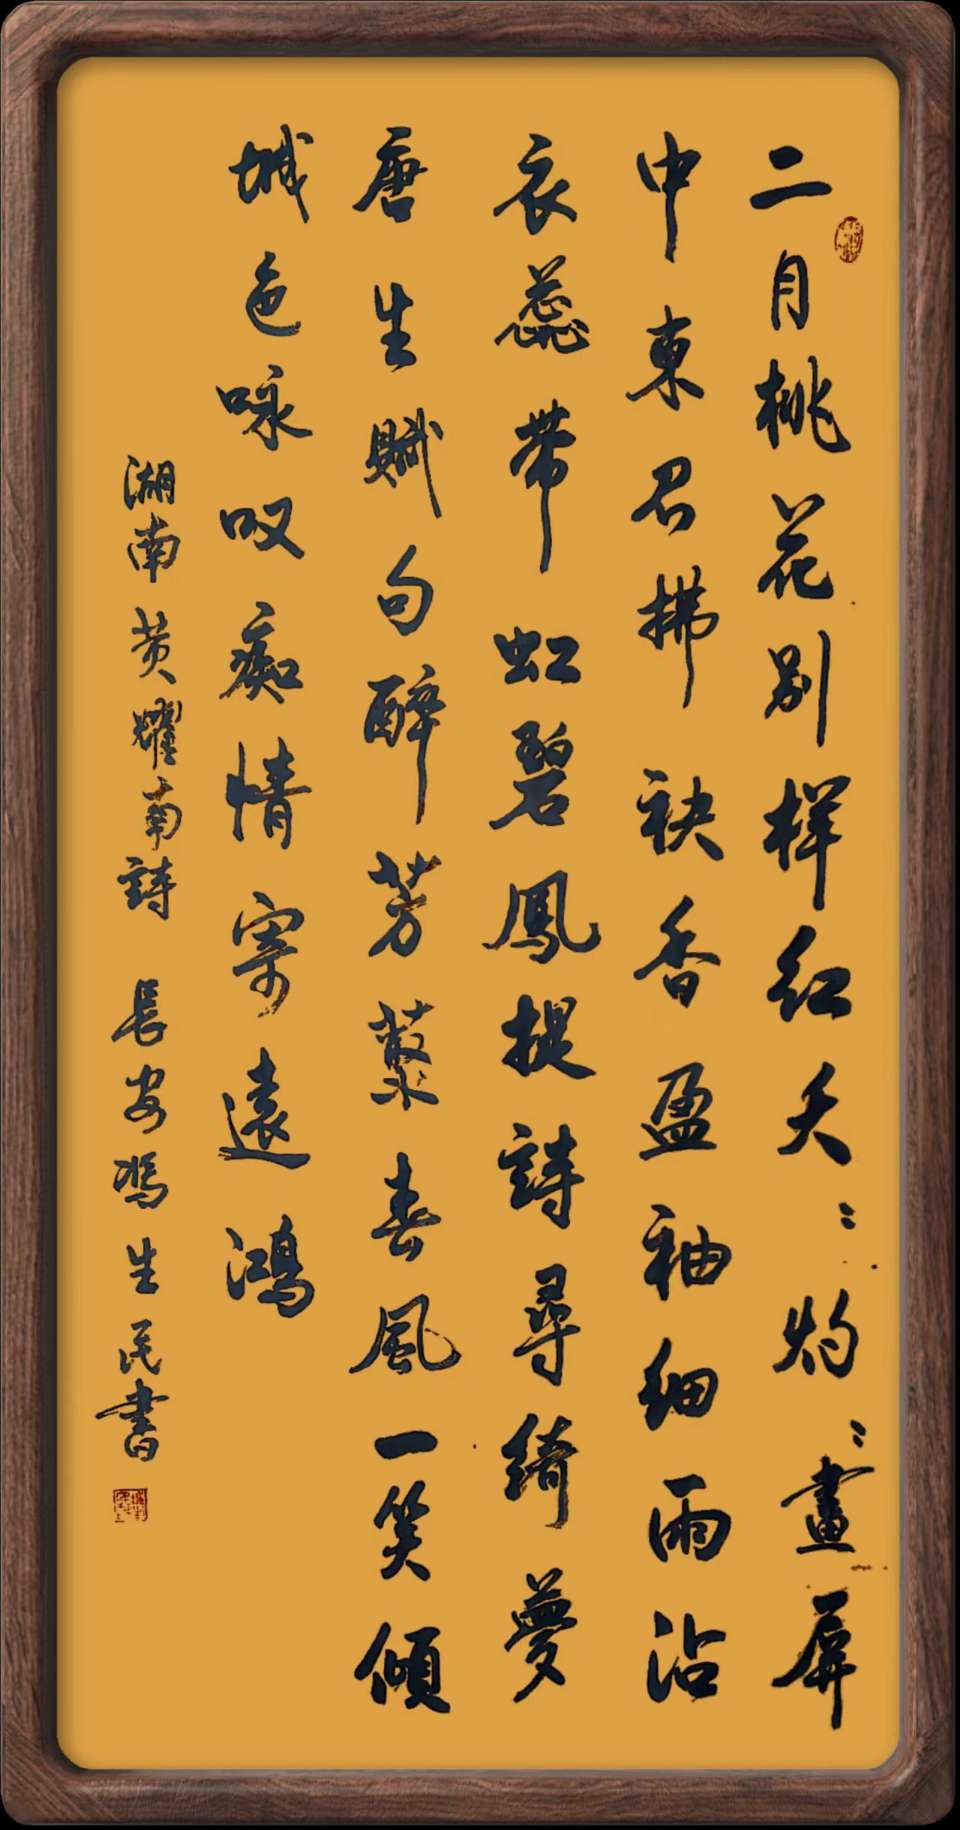 二月桃花别样红夭〻灼〻畫屏
中東君拂袂香盈袖细雨沾
衣蕊带虹碧鳳提詩尋綺夢
唐生赋句醉芳藂春風一笑傾
城色咏叹痴情寄遠鴻
湖南黄耀南詩 長安馮生民書